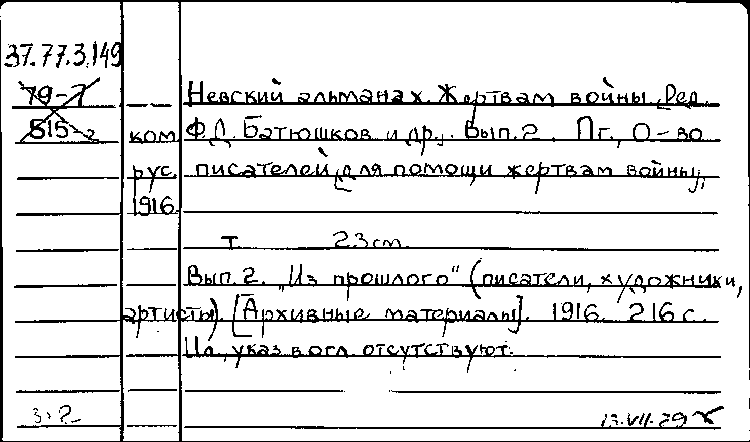 37.77.3.149
79-7 — Невский альманах. Жертвам войны. [Ред.
515-2 ком. Ф.Д. Батюшков и др.]. Вып. 2. Пг., О-во
рус. писателей [для помощи жертвам войны],
1916.
т. 23 см.
Вып. 2. "Из прошлого" (писатели, художники,
артисты). [Архивные материалы]. 1916. 216 с.
Ил., указ. в огл. отсутствуют.
3.2 13.VII.79